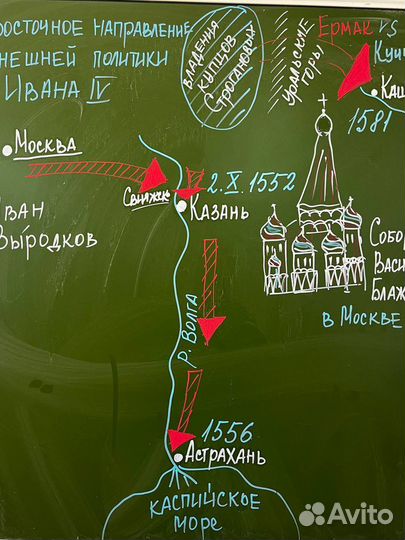 восточное направление
внешней политики
Ивана IV
владения
купцов
Строгановых
Уральские
горы
Ермак vs
Кучу
Каш
1581
Москва
Свияжск
2.X.1552
Казань
Иван
Выродков
Собор
Васи
Блаж
в Москве
р. Волга
1556
Астрахань
Каспийское
море
Avito